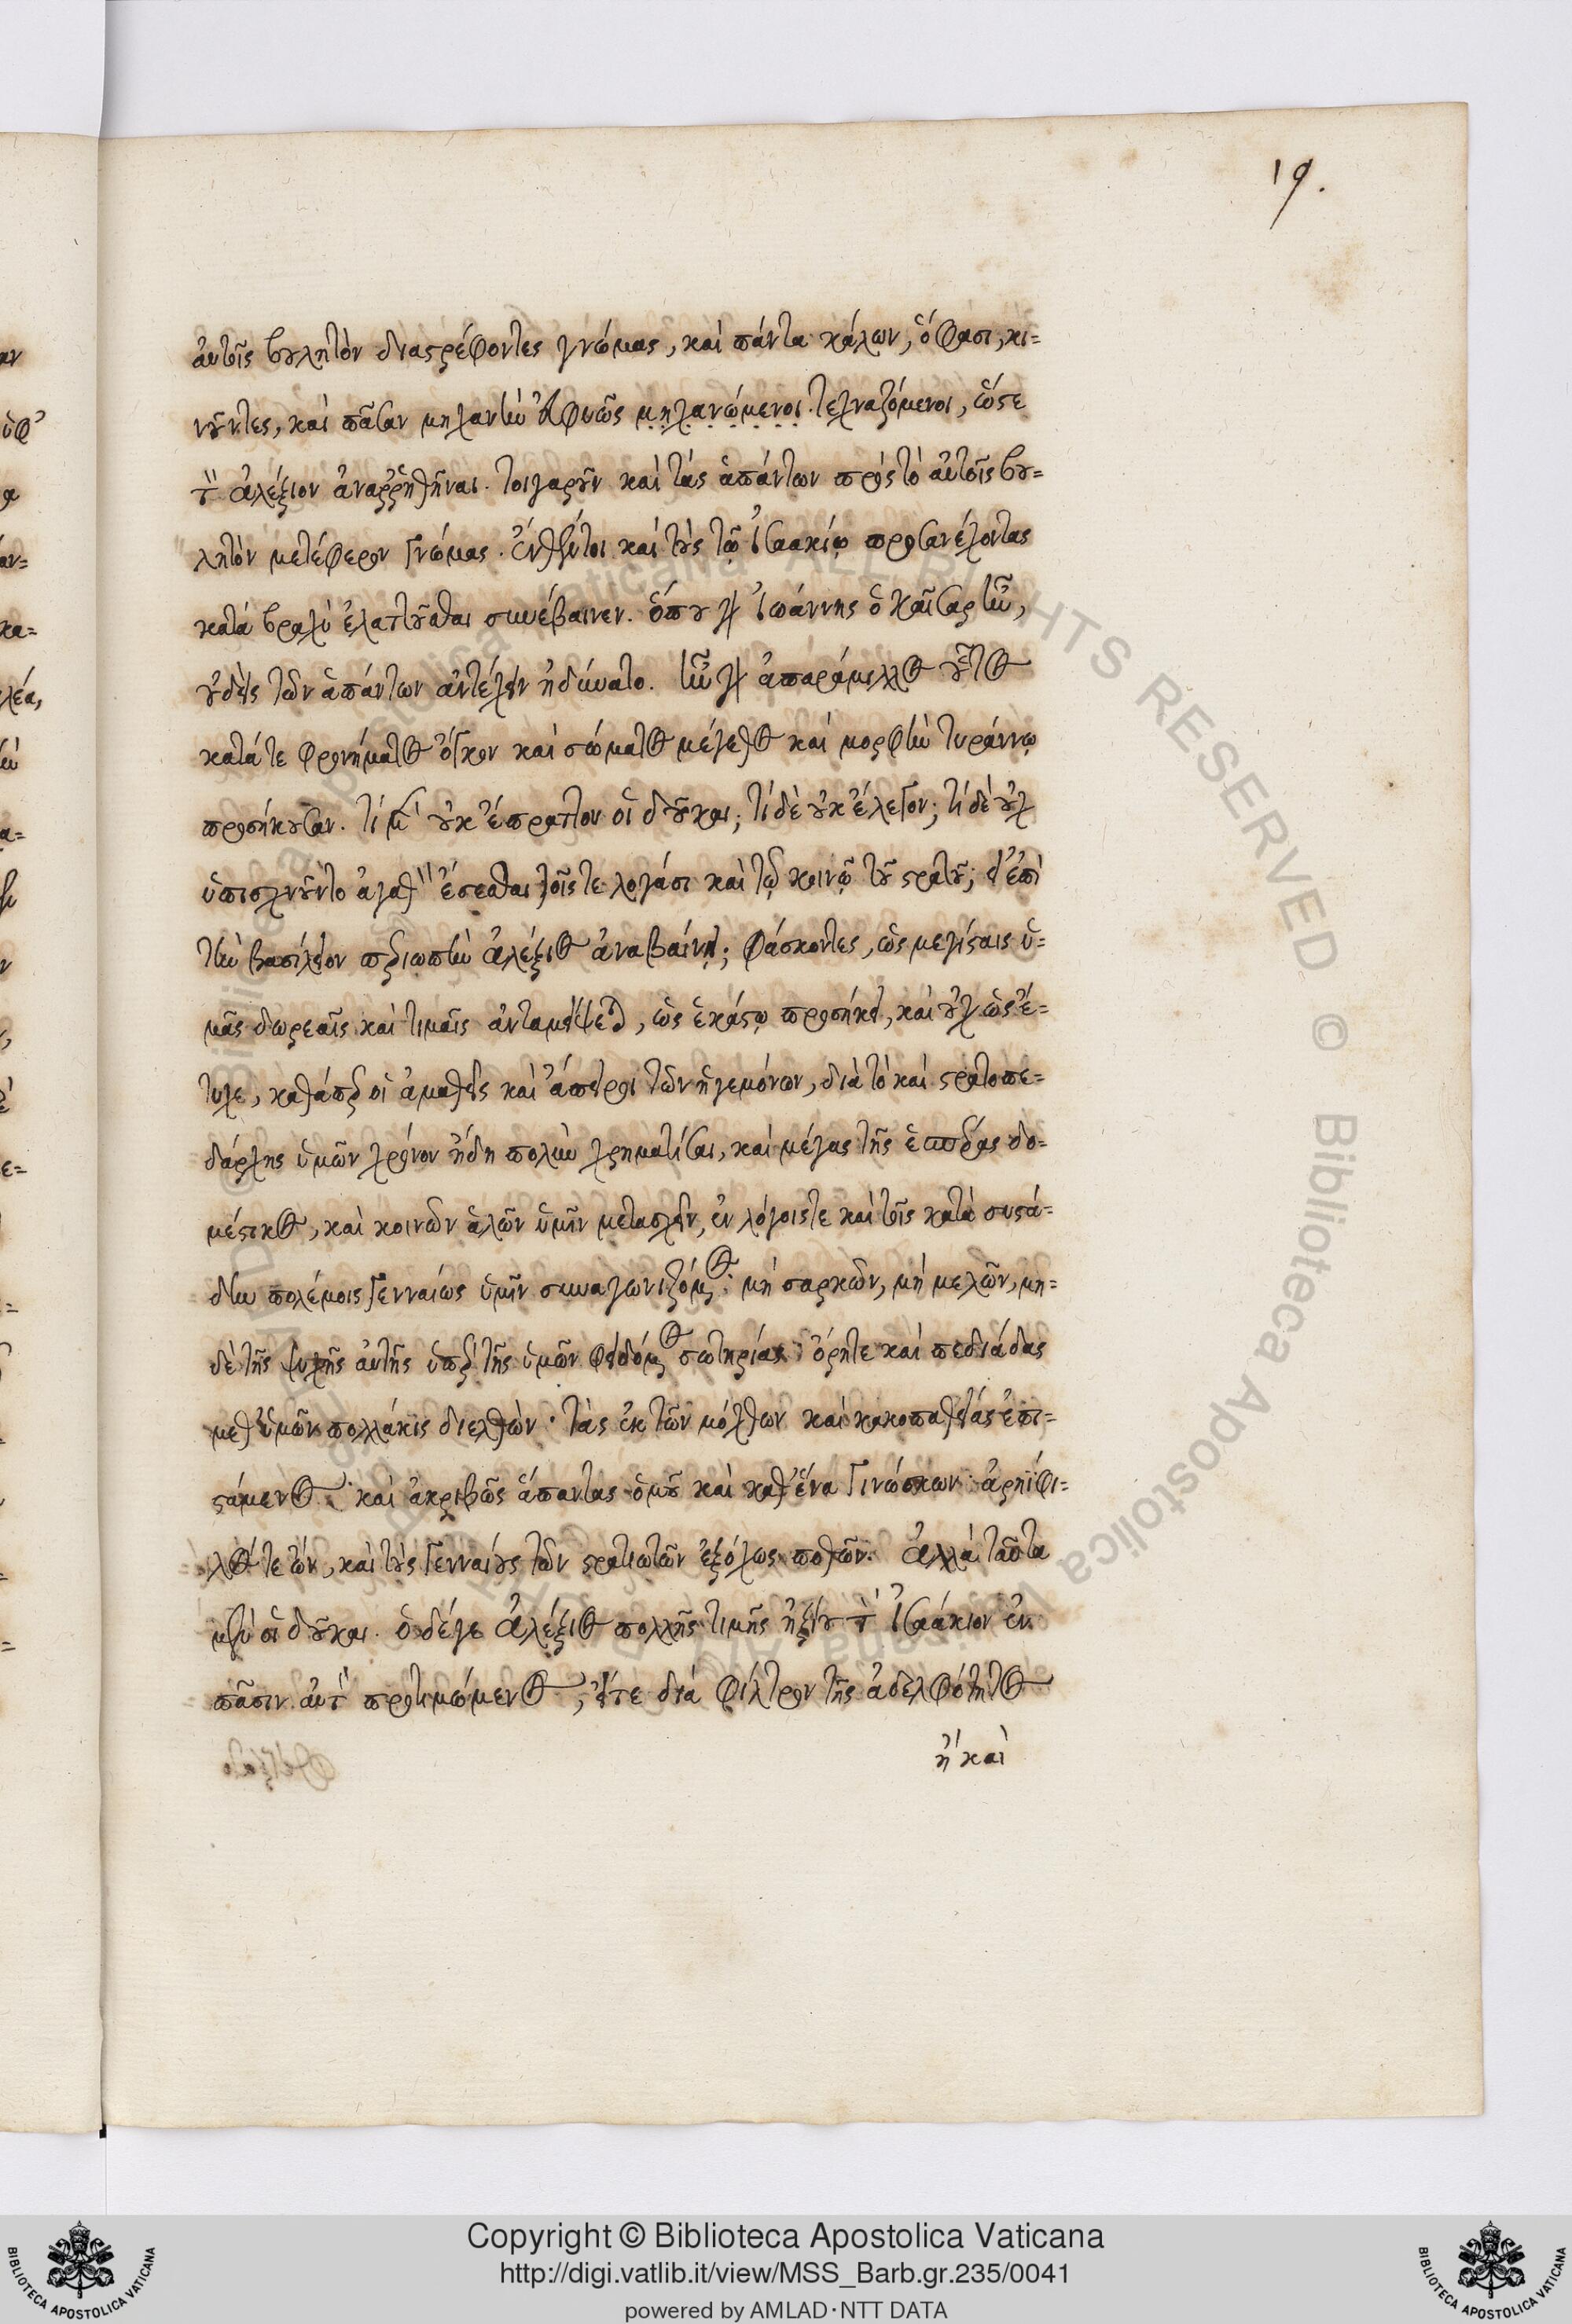 19.
αὐτοῖς βουλητὸν διαστρέφοντες γνώμας, καὶ πάντα κάλων, ὅ φασι, κι=
νοῦντες, καὶ πᾶσαν μηχανὴν εὐφυῶς μηχανώμενοι τεχναζόμενοι, ὥστε
τὸν ἀλέξιον ἀναρρηθῆναι. τοιγαροῦν καὶ τὰς ἁπάντων πρὸς τὸ αὐτοῖς βου=
λητὸν μετέφερον γνώμας. ἐνθέντοι καὶ τοὺς τῷ ἰσαακίῳ προσανέχοντας
κατὰ βραχὺ ἐλαττοῦσθαι συνέβαινεν. ὅπου γὰρ ἰωάννης ὁ καῖσαρ ἦν,
οὐδεὶς τῶν ἁπάντων ἀντέχειν ἠδύνατο. ἦν γὰρ ἀπαράμιλλος οὗτος
κατά τε φρονήματος ὄγκον καὶ σώματος μέγεθος καὶ μορφὴν τυράννῳ
προσήκουσαν. τί μὴ οὐκ ἔπραττον οἱ δοῦκαι; τί δὲ οὐκ ἔλεγον; τί δὲ οὐχ
ὑπισχνοῦντο ἀγαθὸν ἔσεσθαι τοῖς τε λογάσι καὶ τῷ κοινῷ τοῦ στρατοῦ; εἰ ἐπὶ
τὴν βασίλειον περιωπὴν ἀλέξιος ἀναβαίνει; φάσκοντες, ὡς μεγίσταις ὑ=
μᾶς δωρεαῖς καὶ τιμαῖς ἀνταμείψεται, ὡς ἑκάστῳ προσήκει, καὶ οὐχ ὡς ἔ=
τυχε, καθάπερ οἱ ἀμαθεῖς καὶ ἄπειροι τῶν ἡγεμόνων, διὰ τὸ καὶ στρατοπε=
δάρχης ὑμῶν χρόνον ἤδη πολὺν χρηματίσαι, καὶ μέγας τῆς ἑσπέρας δο=
μέστικος, καὶ κοινῶν ἁλῶν ὑμῖν μετασχεῖν, ἐν λόχοις τε καὶ τοῖς κατὰ συστά=
δην πολέμοις γενναίως ὑμῖν συναγωνιζόμενος: μὴ σαρκῶν, μὴ μελῶν, μη=
δὲ τῆς ψυχῆς αὐτῆς ὑπὲρ τῆς ὑμῶν φειδόμενος σωτηρίας: ὄρη τε καὶ πεδιάδας
μεθ' ὑμῶν πολλάκις διελθών. τὰς ἐκ τῶν μόχθων καὶ κακοπαθείας ἐπι=
στάμενος: καὶ ἀκριβῶς ἅπαντας ὁμοῦ καὶ καθ' ἕνα γινώσκων: ἀρηΐφι=
λός τε ὤν, καὶ τοὺς γενναίους τῶν στρατιωτῶν ἐξόχως ποθῶν. ἀλλὰ ταῦτα
μὲν οἱ δοῦκαι. ὁ δέ γε ἀλέξιος πολλῆς τιμῆς ἠξίου τὸν ἰσαάκιον ἐν
πᾶσιν αὐτὸν προτιμώμενος, εἴτε διὰ φίλτρον τῆς ἀδελφότητος
ἢ καὶ
Copyright © Biblioteca Apostolica Vaticana
http://digi.vatlib.it/view/MSS_Barb.gr.235/0041
powered by AMLAD·NTT DATA